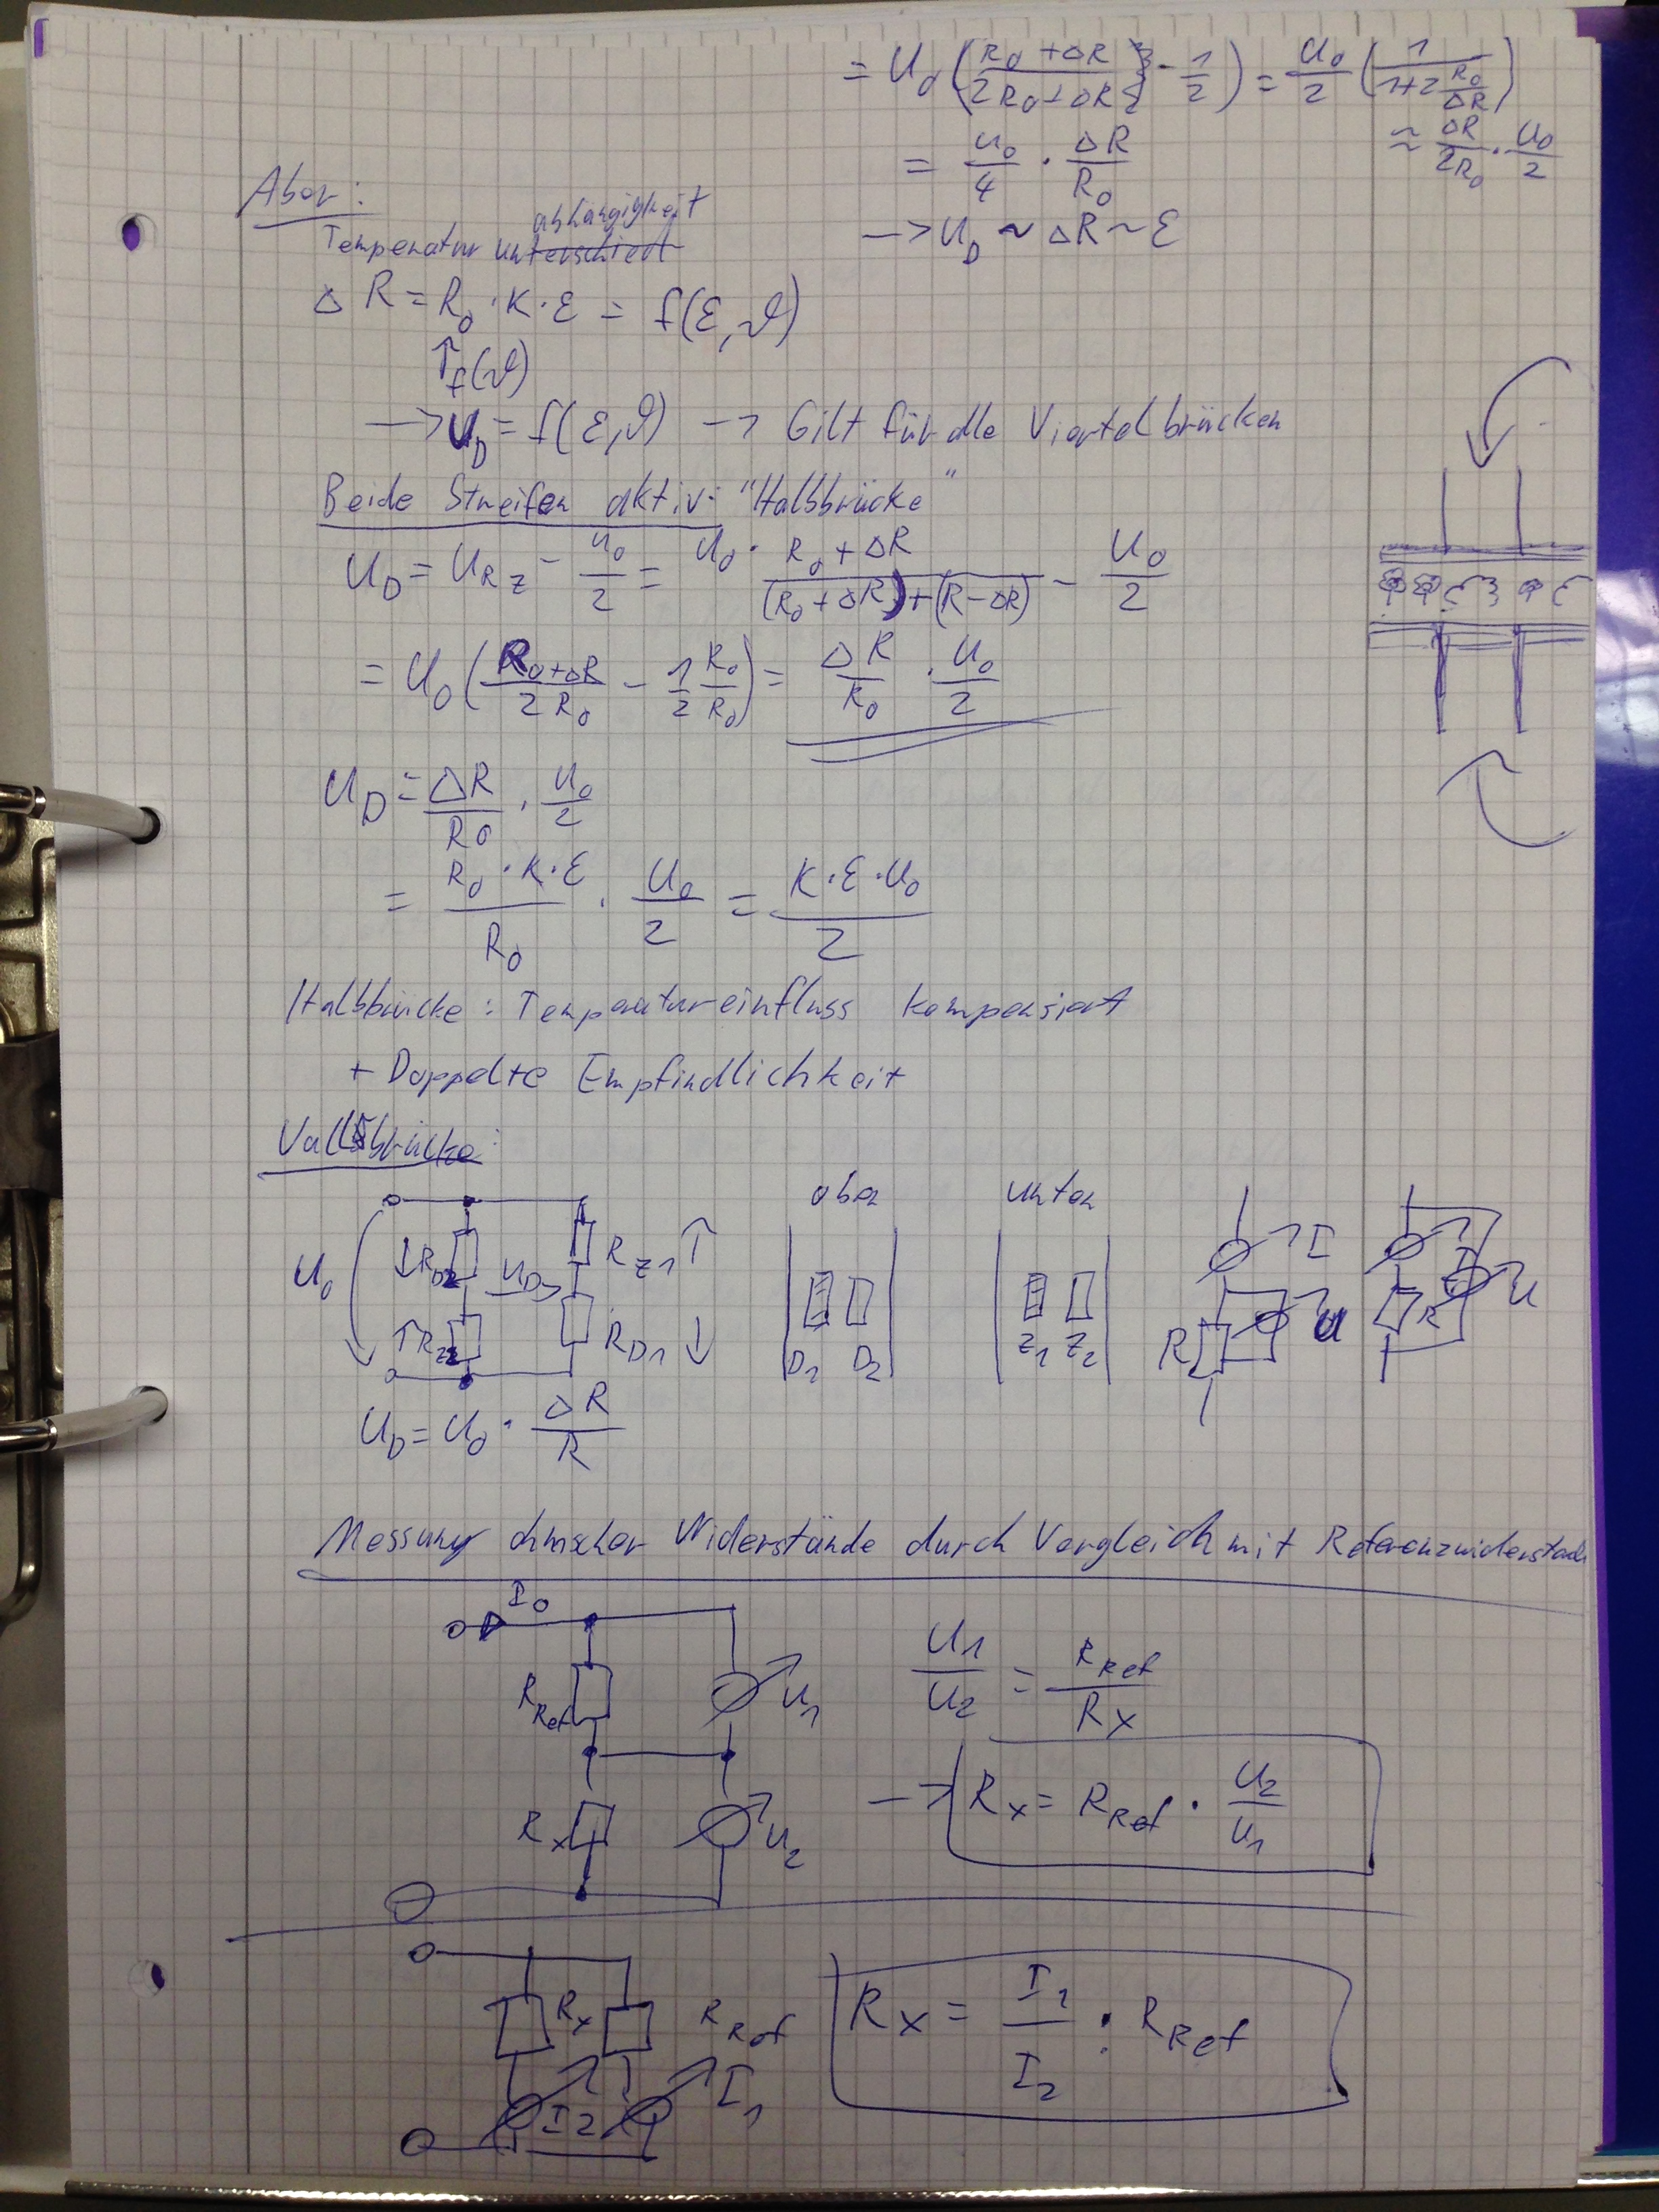 = U₀ ( (R₀ + ΔR)/(2R₀ + ΔR) - 1/2 ) = U₀/2 ( 1/(1+2 R₀/ΔR) )
= U₀/4 · ΔR/R₀ ≈ ΔR/2R₀ · U₀/2
→ U_D ~ ΔR ~ ε
Aber:
abhängigkeit
Temperatur unterschied
ΔR = R₀ · K · ε = f(ε, ϑ)
↑ f(ϑ)
→ U_D = f(ε, ϑ) → Gilt für alle Viertelbrücken
Beide Streifen aktiv: "Halbbrücke"
U_D = U_RZ - U₀/2 = U₀ · (R₀ + ΔR)/((R₀ + ΔR) + (R - ΔR)) - U₀/2
= U₀ ( (R₀+ΔR)/(2R₀) - 1/2 R₀/R₀ ) = ΔR/R₀ · U₀/2
U_D = ΔR/R₀ · U₀/2
= (R₀ · K · ε)/R₀ · U₀/2 = (K · ε · U₀)/2
Halbbrücke: Temperatureinfluss kompensiert
+ Doppelte Empfindlichkeit
Vollbrücke:
oben unten
U₀ ↓R_D2 U_D R_Z1↑ I I
↑R_Z2 R_D1↓ D₁ D₂ Z₁ Z₂ R U R U
U_D = U₀ · ΔR/R
Messung ohmscher Widerstände durch Vergleich mit Referenzwiderstand
I₀
R_Ref U₁ U₁/U₂ = R_Ref/R_X
R_X U₂ → R_X = R_Ref · U₂/U₁
R_X R_Ref R_X = I₁/I₂ · R_Ref
I₂ I₁